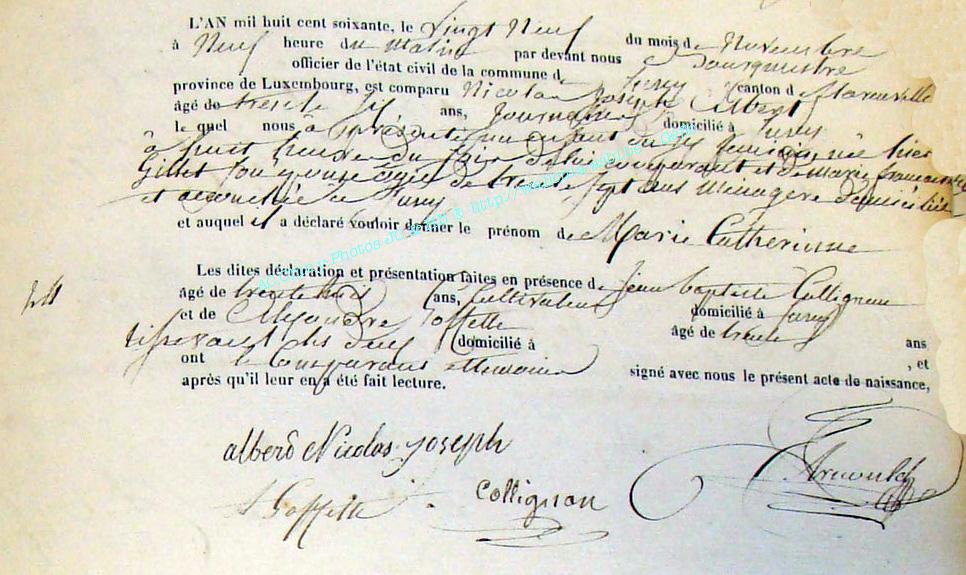 L'AN mil huit cent soixante, le vingt Neuf du mois de Novembre
à Neuf heure du matin par devant nous Bourgmestre
officier de l'état civil de la commune de Jusny canton d
province de Luxembourg, est comparu Nicolas Joseph Albert
âgé de trente six ans, Journalier domicilié à
le quel nous à présenté un enfant du sexe féminin, née hier
à huit heures du soir de lui comparant et de Marie
Gillet son épouse agée de trente sept ans ménagère domiciliée
et accouchée à
et auquel il a déclaré vouloir donner le prénom de Marie Catherinne
Les dites déclaration et présentation faites en présence de Jean Baptiste Collignon
âgé de trente ans, Cultivateur domicilié à
et de Goffette âgé de trente ans
domicilié à , et
ont le Comparant et temoins signé avec nous le présent acte de naissance,
après qu'il leur en a été fait lecture.
albert Nicolas joseph
Goffette Collignon Arnould